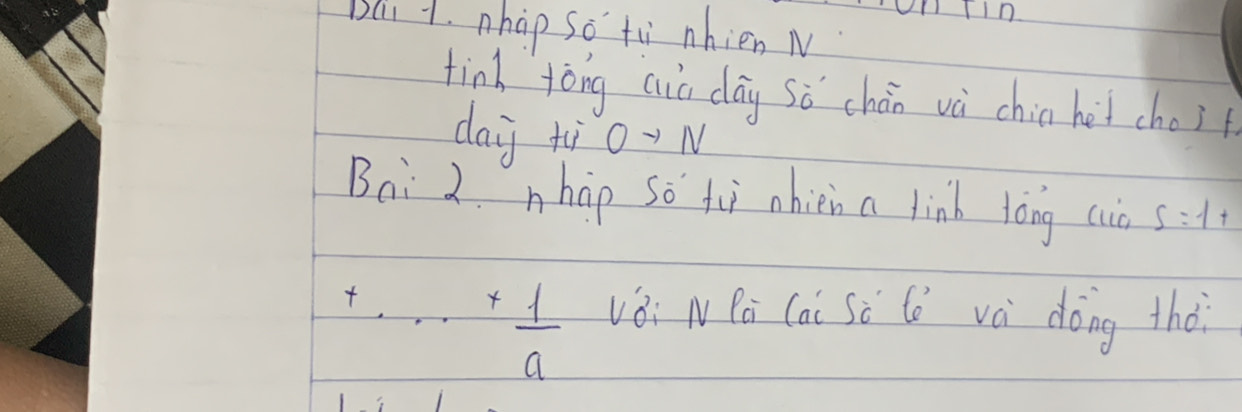 Bài 1. nhập số tự nhiên N
tính tổng của dãy số chẵn và chia hết cho
dãy từ 0 → N
Bài 2. nhập số tự nhiên a tính tổng của S = 1 +
+ ... + 1/a với N là các số lẻ và đồng thời